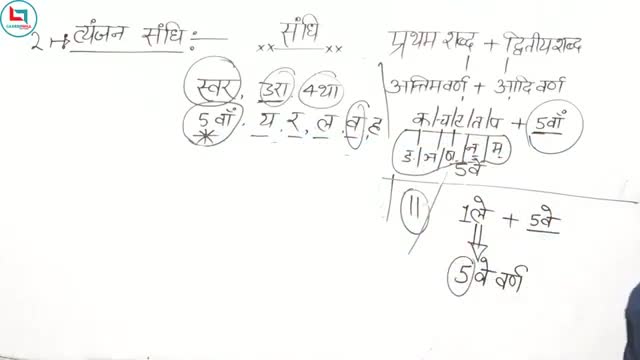 2. → व्यंजन संधि :-
स्वर, 3रा, 4था
5 वाँ, य, र, ल, व, ह
संधि
प्रथम शब्द + द्वितीय शब्द
अन्तिम वर्ण + आदि वर्ण
क/च/ट/त/प + 5वाँ
ङ/ञ/ण/न्/म्
5वे
॥ 1ले + 5वे
5 वे वर्ण